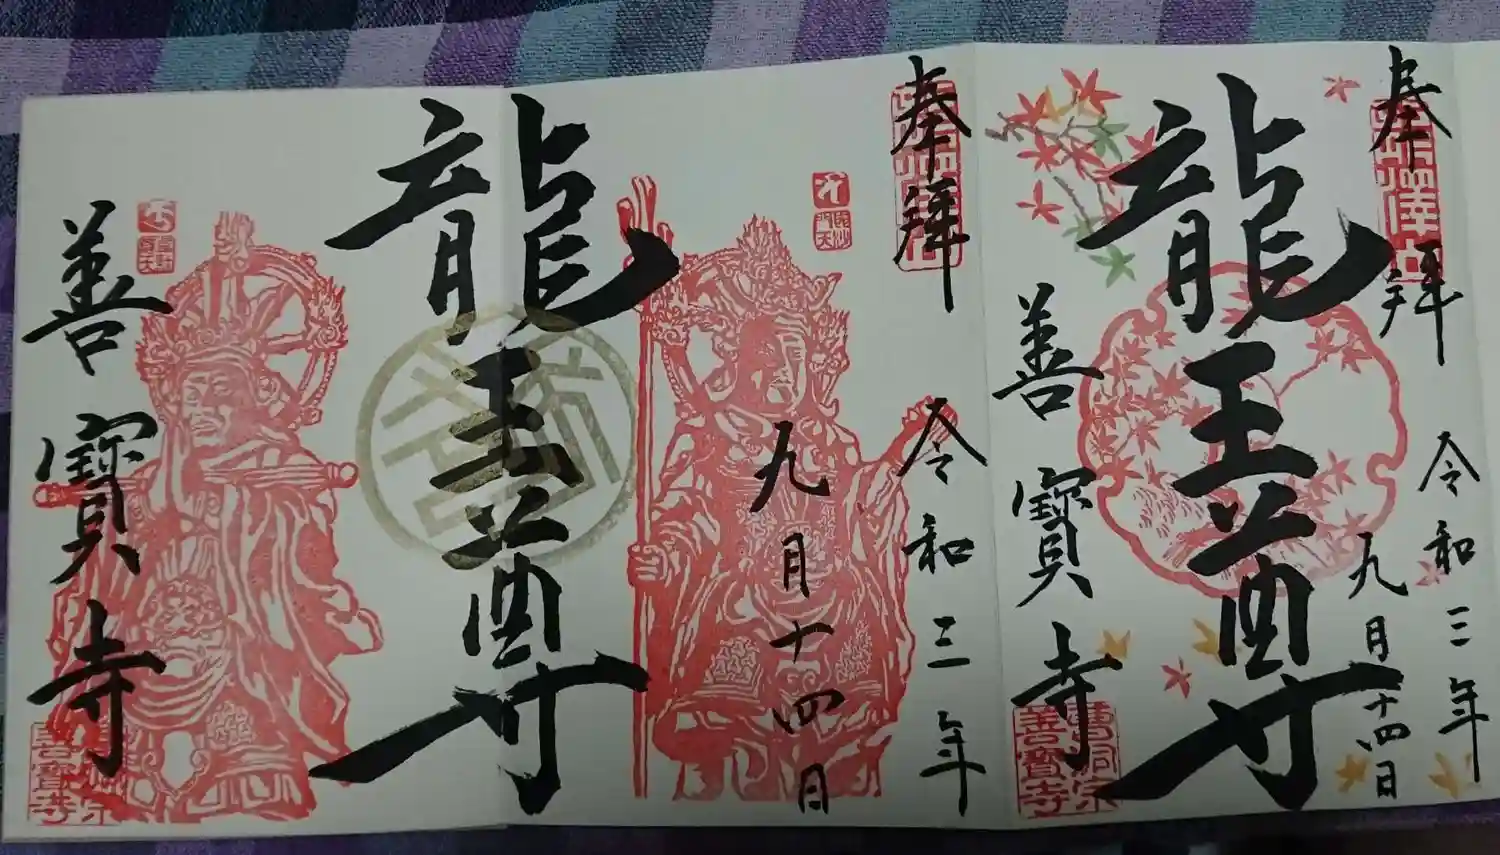 奉拝
令和三年
九月十四日
龍王尊
善寳寺
曹洞宗
善寳寺
奉拝
令和三年
九月十四日
毘沙
門天
龍王尊
善寳寺
善寳寺